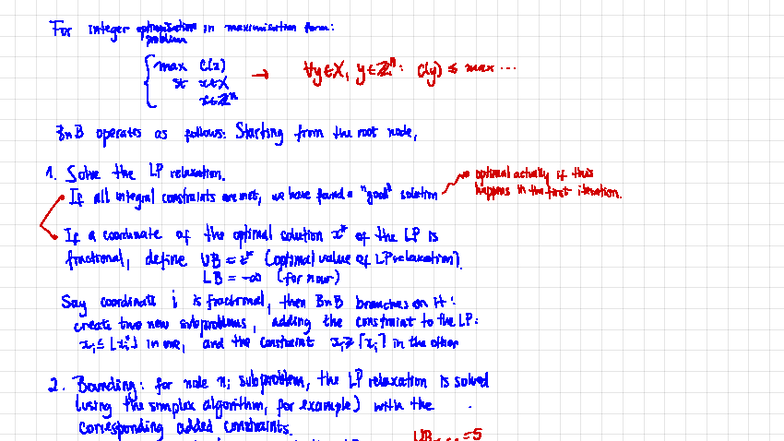 For integer optimisation in maximisation form:
problem
max c(x)
st x∈X
x∈ℤⁿ
→ ∀y∈X, y∈ℤⁿ: c(y) ≤ max ...
BnB operates as follows: Starting from the root node,
1. Solve the LP relaxation.
• If all integral constraints are met, we have found a "good" solution
→ optimal actually if this
happens in the first iteration.
• If a coordinate of the optimal solution x* of the LP is
fractional, define UB = z* (optimal value of LP relaxation).
LB = -∞ (for now)
Say coordinate i is fractional, then BnB branches on it:
create two new subproblems, adding the constraint to the LP:
xᵢ ≤ ⌊xᵢ*⌋ in one, and the constraint xᵢ ≥ ⌈xᵢ*⌉ in the other
2. Bounding: for node nᵢ subproblem, the LP relaxation is solved
(using the simplex algorithm, for example) with the
corresponding added constraints.